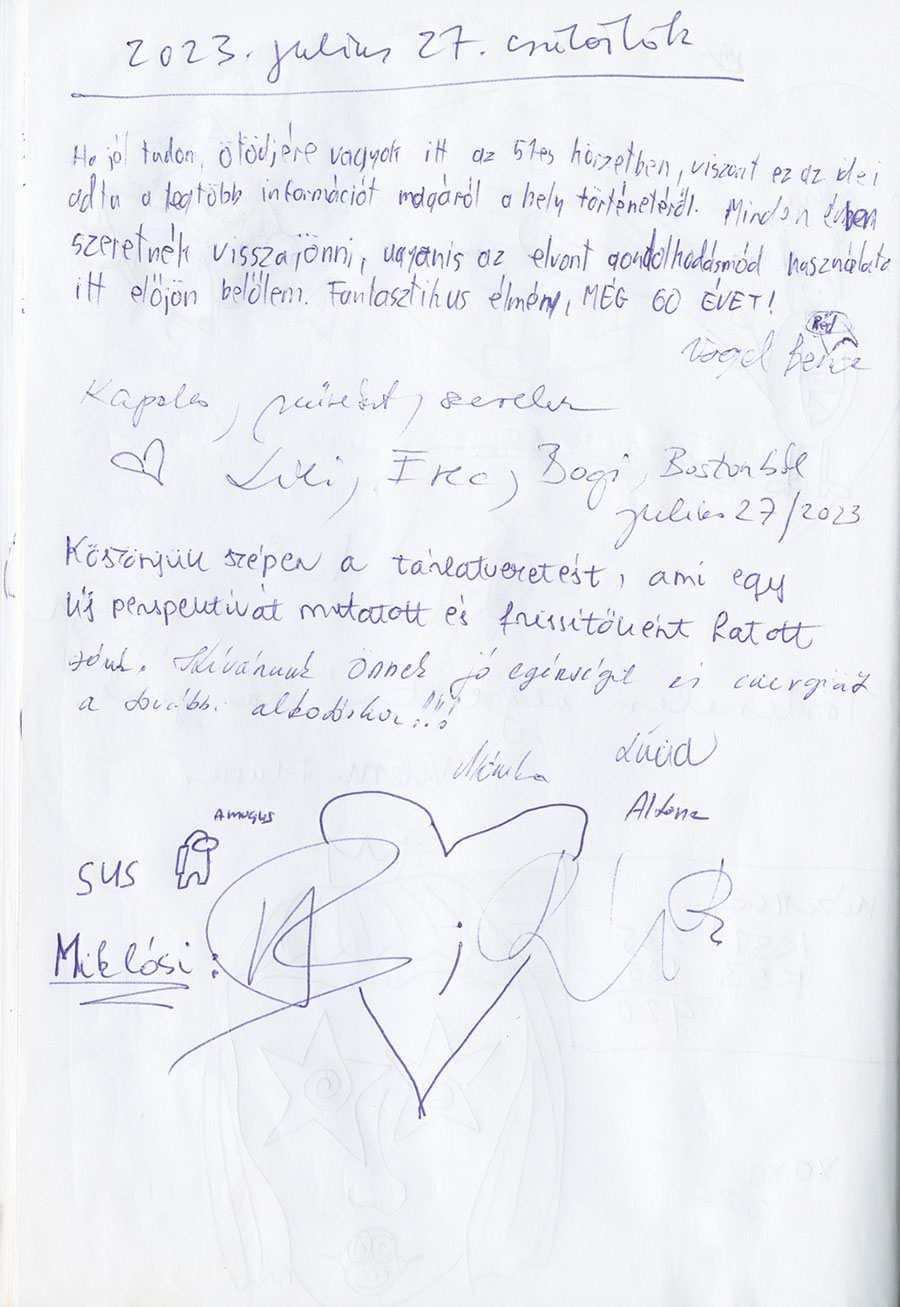 2023. július 27. csütörtök
Ha jól tudom, ötödjére vagyok itt az 51es körzetben, viszont ez az idei
adta a legtöbb információt magáról a hely történetéről. Minden évben
szeretnék visszajönni, ugyanis az elvont gondolkodásmód használata
itt előjön belőlem. Fantasztikus élmény, MÉG 60 ÉVET!
Vogel Bence
Kapolcs, művészet, szerelem
Lili, Bogi, Bostonból
július 27/2023
Köszönjük szépen a tárlatvezetést, ami egy
új perspektívát mutatott és frissítőként hatott
ránk. Kívánunk Önnek jó egészséget és energiát
a további alkotáshoz!!!
Mónika
Amogus
SUS
Miklósi: